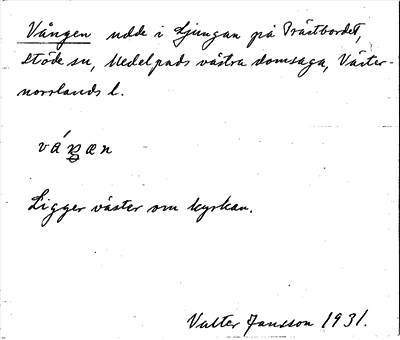 Vången udde i Ljungan på Prästbordet,
Stöde sn, Medelpads västra domsaga, Väster-
norrlands l.
Ligger väster om kyrkan.
Valter Jansson 1931.